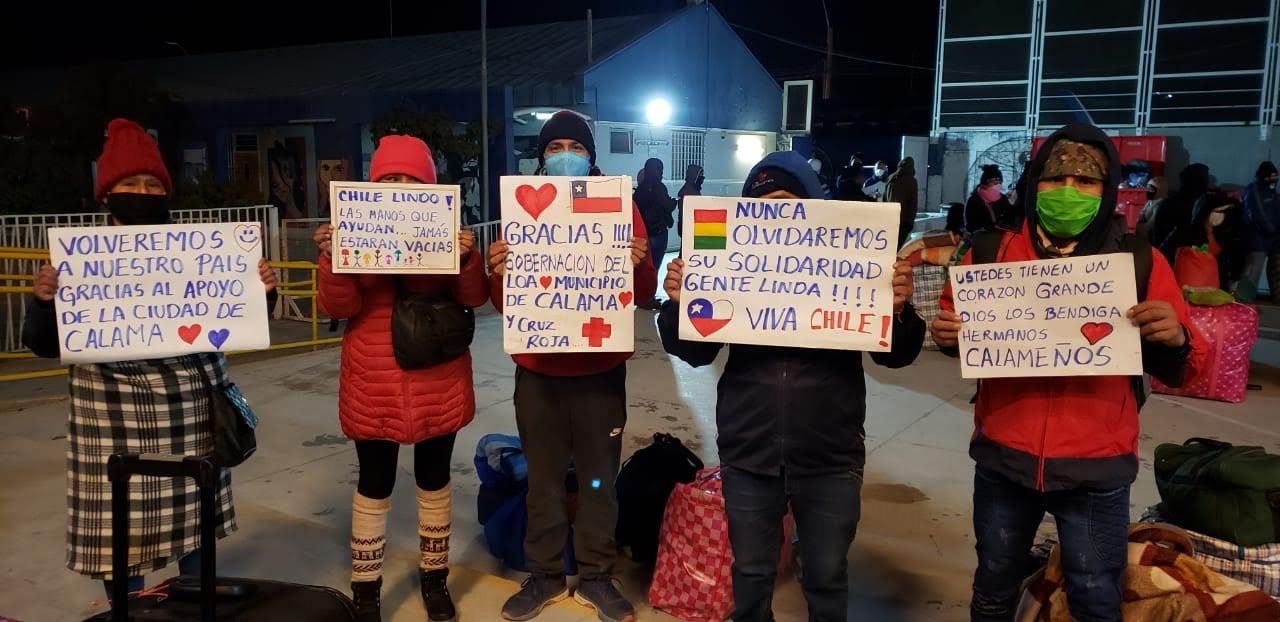 VOLVEREMOS
A NUESTRO PAIS
GRACIAS AL APOYO
DE LA CIUDAD DE
CALAMA
CHILE LINDO!
LAS MANOS QUE
AYUDAN... JAMAS
ESTARAN VACIAS
GRACIAS !!!!
GOBERNACION DEL
LOA MUNICIPIO
DE CALAMA
Y CRUZ
ROJA...
NUNCA
OLVIDAREMOS
SU SOLIDARIDAD
GENTE LINDA!!!!
VIVA CHILE!
USTEDES TIENEN UN
CORAZON GRANDE
DIOS LOS BENDIGA
HERMANOS
CALAMEÑOS